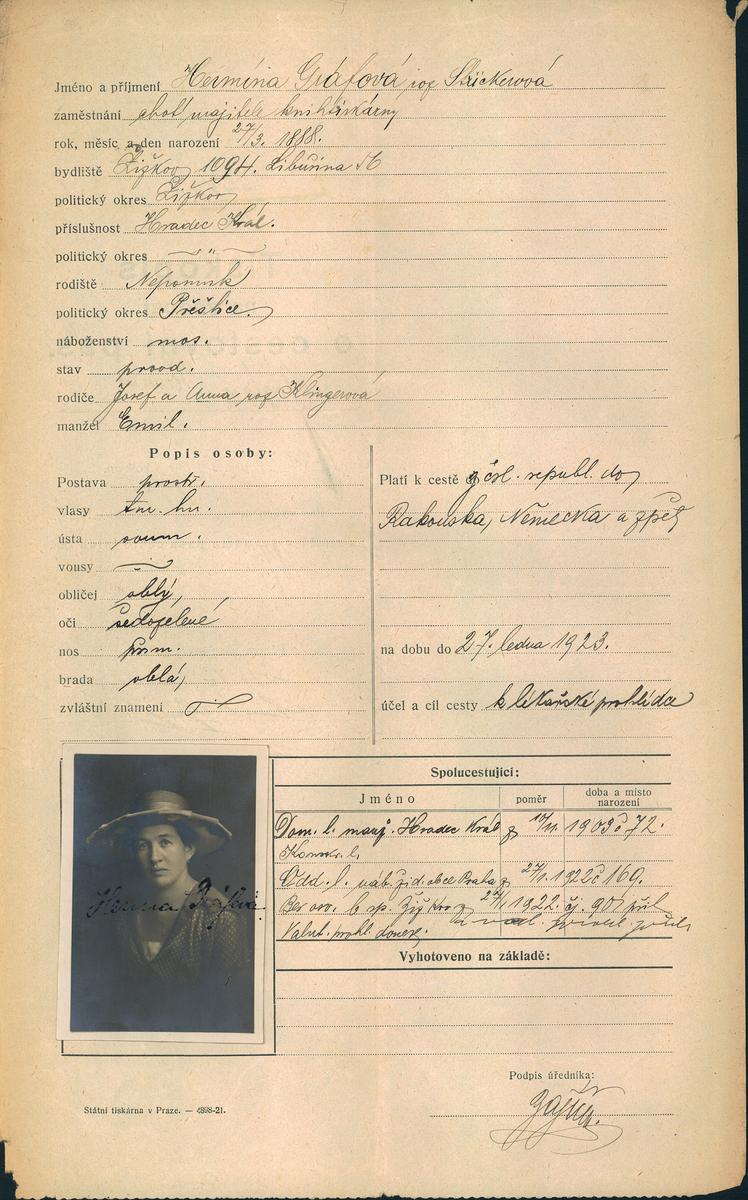 Jméno a příjmení Hermína Gráfová roz Strickerová
zaměstnání choť majitele knihtiskárny
rok, měsíc a den narození 27/3. 1888.
bydliště Žižkov, 1094. Libušina 16
politický okres Žižkov
příslušnost Hradec Král.
politický okres — " —
rodiště Nepomuk
politický okres Přeštice.
náboženství mos.
stav provd.
rodiče Josef a Anna roz Klingerová
manžel Emil.
Popis osoby:
Postava prostř.
vlasy tm. hn.
ústa soum.
vousy —
obličej oblý
oči šedozelené
nos přim.
brada oblá
zvláštní znamení
Platí k cestě z čsl. republ. do
Rakouska, Německa a zpět
na dobu do 27. ledna 1923.
účel a cíl cesty k lékařské prohlídce
Herma Gráfová
Spolucestující:
Jméno poměr doba a místo narození
Dom. l. manž. Hradec Král z 10/11. 1903 č 72.
Konskr. l.
Odd. l. náb. žid. obce Praha z 27/1. 1922 č 169.
Ber. ú. 1922. čj. 907
Valut. prohl.
Vyhotoveno na základě:
Podpis úředníka:
Státní tiskárna v Praze. — 4898-21.